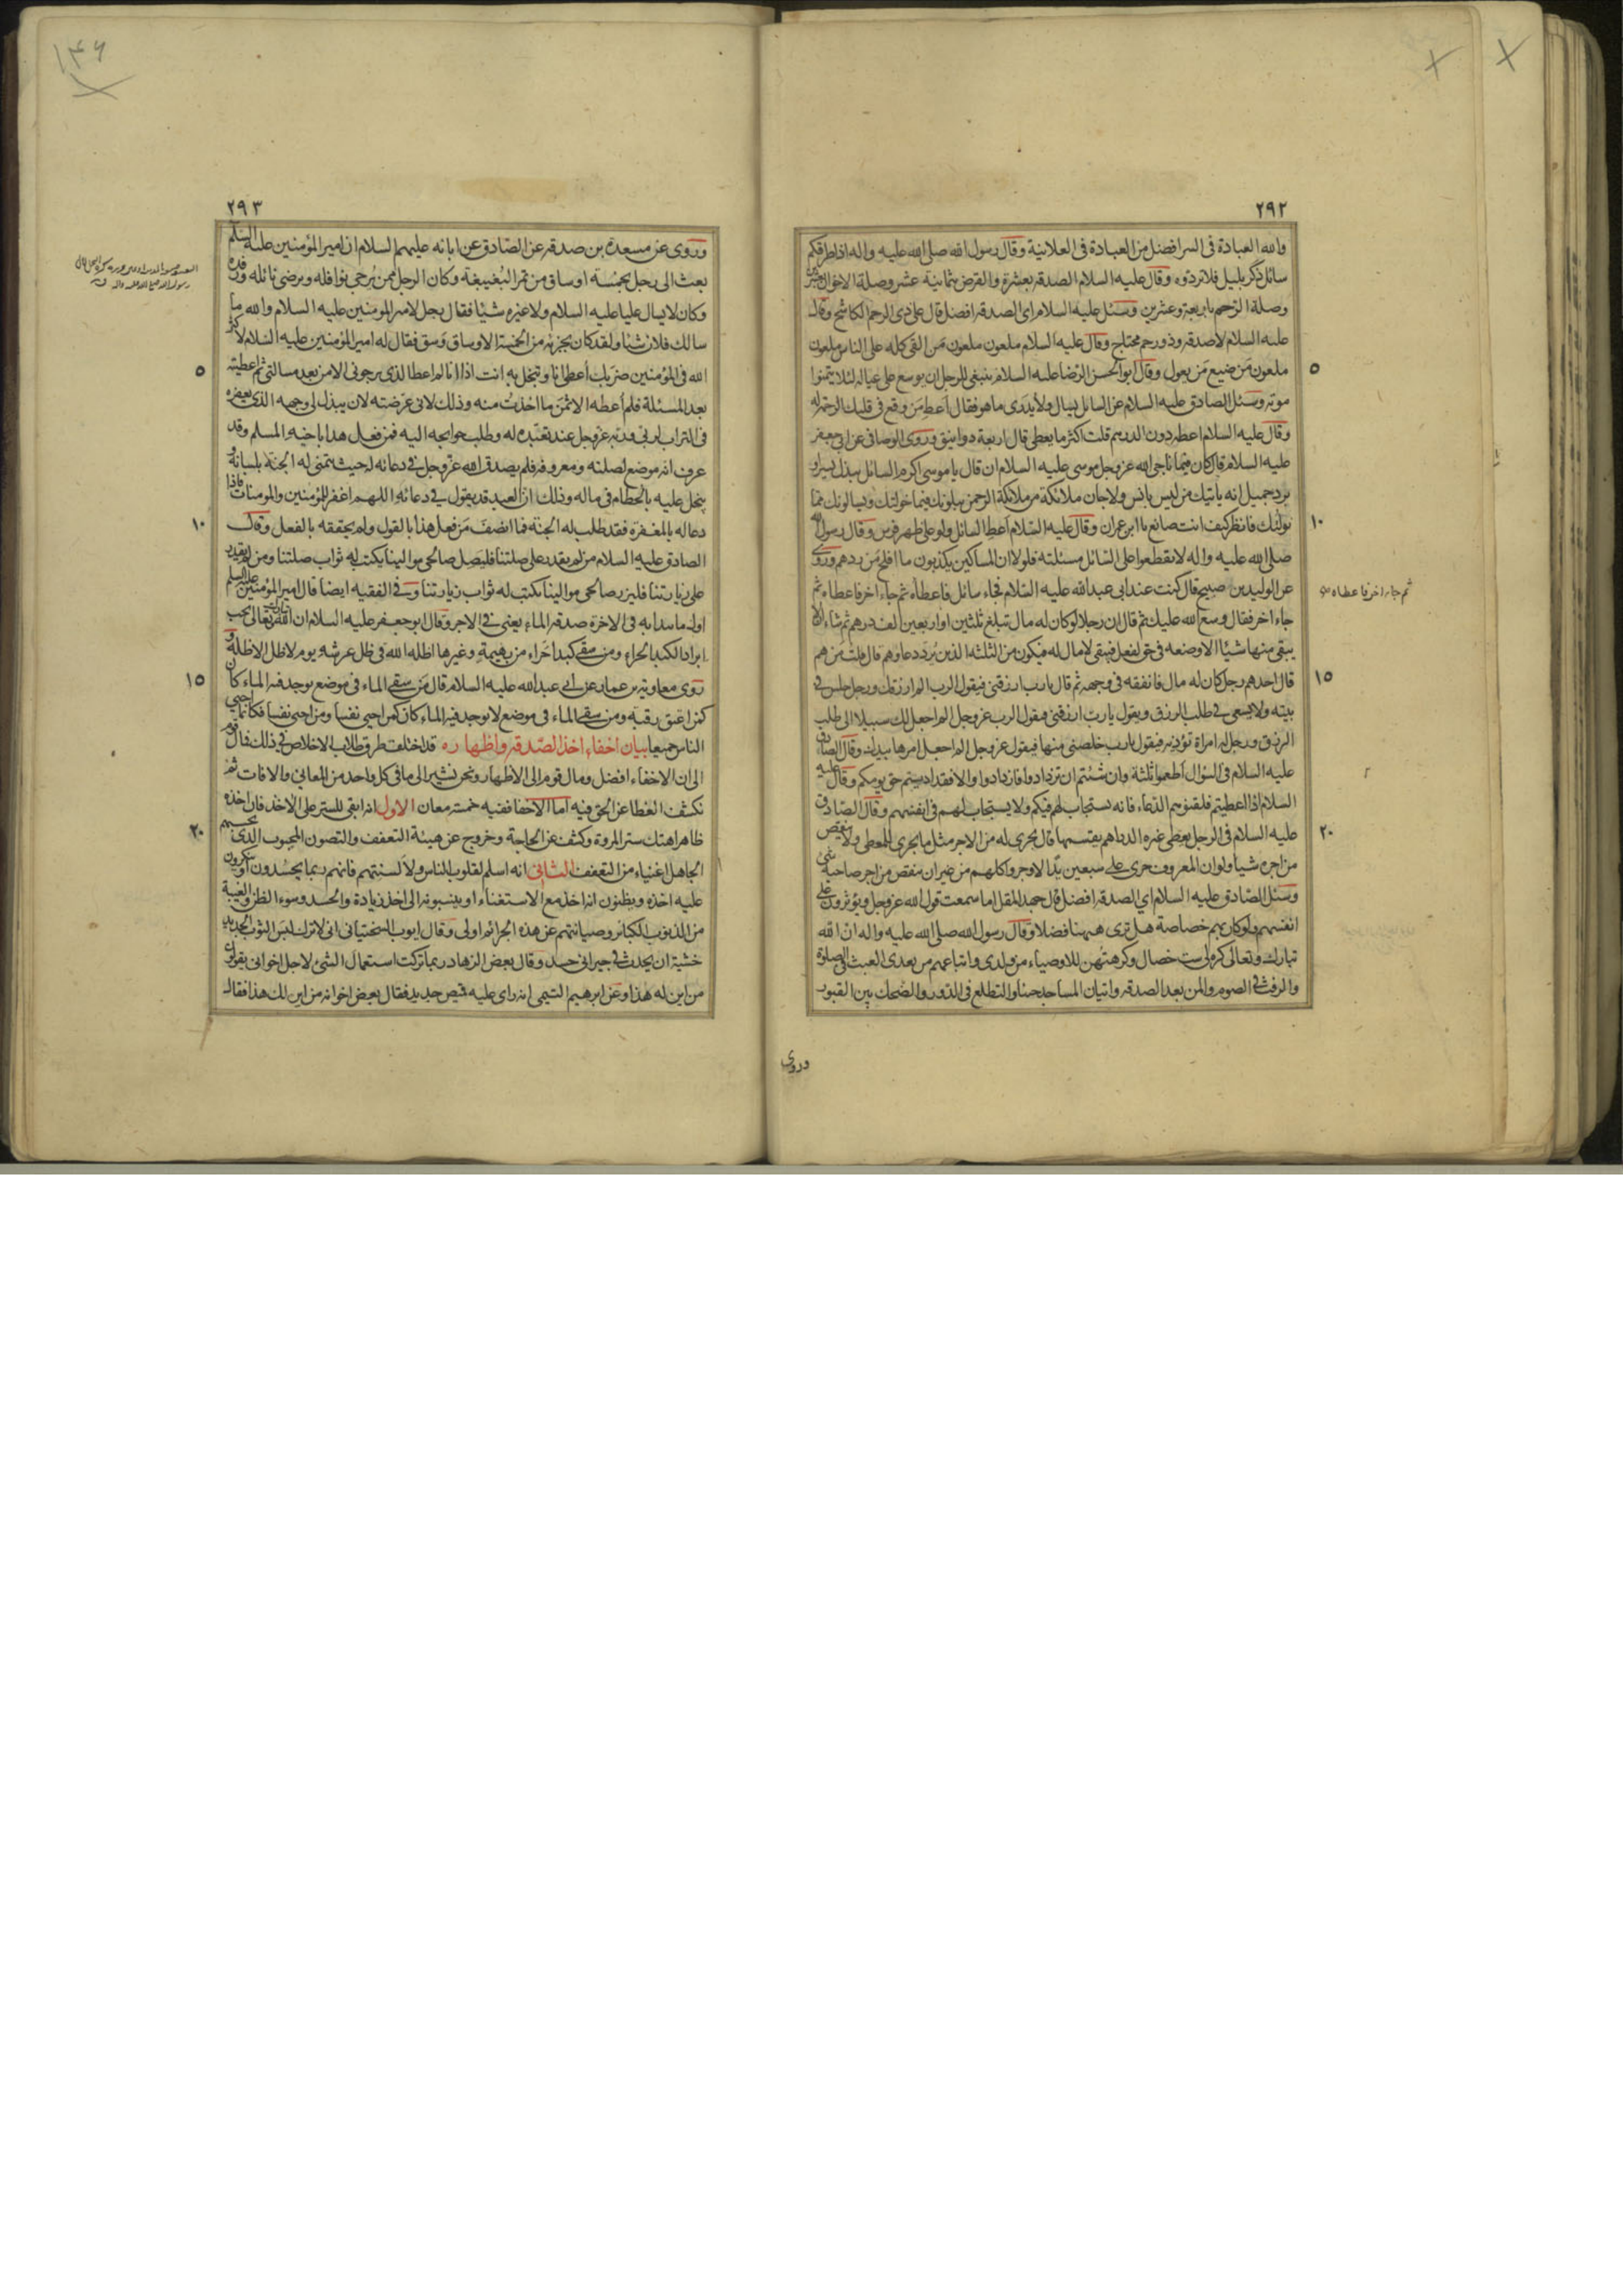 ٢٩٢
والله العبادة فى السر افضل من العبادة فى العلانية وقال رسول الله صلى الله عليه واله اذا طرقكم
سائل ذكر بليل فلا تردوه وقال عليه السلام الصدقة بعشرة والقرض بثمانية عشر وصلة الاخوان بعشرين
وصلة الرحم باربعة وعشرين وسئل عليه السلام اى الصدقة افضل قال على ذى الرحم الكاشح وقال
عليه السلام لا صدقة وذو رحم محتاج وقال عليه السلام ملعون ملعون من القى كله على الناس ملعون
٥
ملعون من ضيع من يعول وقال ابو الحسن الرضا عليه السلام ينبغى للرجل ان يوسع على عياله لئلا يتمنوا
موته وسئل الصادق عليه السلام عن السائل يسال ولا يدرى ما هو فقال اعط من وقع فى قلبك الرحمة له
وقال عليه السلام اعطه دون الدرهم قلت اكثر ما يعطى قال اربعة دوانيق وروى الوصافى عن ابى جعفر
عليه السلام قال كان فيما ناجى الله عز وجل موسى عليه السلام ان قال يا موسى اكرم السائل ببذل يسير او
برد جميل انه ياتيك من ليس بانس ولا جان ملائكة من ملائكة الرحمن يبلونك فيما خولتك ويسالونك مما
١٠
نولتك فانظر كيف انت صانع يا ابن عمران وقال عليه السلام اعط السائل ولو على ظهر فرس وقال رسول الله
صلى الله عليه واله لا تقطعوا على السائل مسئلته فلولا ان المساكين يكذبون ما افلح من ردهم وروى
عن الوليد بن صبيح قال كنت عند ابى عبد الله عليه السلام فجاءه سائل فاعطاه ثم جاء اخر فاعطاه ثم
ثم جاء اخر فاعطاه
جاء اخر فقال وسع الله عليك ثم قال ان رجلا لو كان له مال تبلغ ثلثين او اربعين الف درهم ثم شاء ان لا
يبقى منها شيئا الا وضعه فى حق لفعل فيبقى لا مال له فيكون من الثلثة الذين يرد دعاؤهم قال قلت من هم
١٥
قال احدهم رجل كان له مال فانفقه فى وجهه ثم قال يا رب ارزقنى فيقول الرب الم ارزقك ورجل جلس فى
بيته ولا يسعى فى طلب الرزق ويقول يا رب ارزقنى فيقول الرب عز وجل الم اجعل لك سبيلا الى طلب
الرزق ورجل له امراة تؤذيه فيقول يا رب خلصنى منها فيقول عز وجل الم اجعل امرها بيدك وقال الصادق
عليه السلام فى السؤال اطعموا ثلثة وان شئتم ان تزدادوا فازدادوا والا فقد اديتم حق يومكم وقال عليه
السلام اذا اعطيتم فلقنوهم الدعاء فانه يستجاب لهم فيكم ولا يستجاب لهم فى انفسهم وقال الصادق
٢٠
عليه السلام فى الرجل يعطى غيره الدراهم يقسمها قال يجرى له من الاجر مثل ما يجرى للمعطى ولا ينقص
من اجره شيئا ولو ان المعروف جرى على سبعين يدا لاوجروا كلهم من غير ان ينقص من اجر صاحبه شئ
وسئل الصادق عليه السلام اى الصدقة افضل قال جهد المقل اما سمعت قول الله عز وجل ويؤثرون على
انفسهم ولو كان بهم خصاصة هل ترى ههنا فضلا وقال رسول الله صلى الله عليه واله ان الله
تبارك وتعالى كره لى ست خصال وكرهتهن للاوصياء من ولدى واتباعهم من بعدى العبث فى الصلوة
والرفث فى الصوم والمن بعد الصدقة واتيان المساجد جنبا والتطلع فى الدور والضحك بين القبور
وروى
٢٩٣
وروى عن مسعدة بن صدقة عن الصادق عن ابائه عليهم السلام ان امير المؤمنين عليه السلم
بعث الى رجل بخمسة اوساق من تمر البغيبغة وكان الرجل ممن يرجى نوافله ويرضى نائله ورفده
وكان لا يسال عليا عليه السلام ولا غيره شيئا فقال رجل لامير المومنين عليه السلام والله ما
سالك فلان شيئا ولقد كان يجزيه من الخمسة الاوساق وسق فقال له امير المؤمنين عليه السلام لا كثر
٥
الله فى المؤمنين ضربك أعطى انا وتبخل به انت اذا انا لم اعط الذى يرجونى الا من بعد مسالتى ثم اعطيته
بعد المسئلة فلم أعطه الا ثمن ما اخذت منه وذلك لانى عرضته لان يبذل لى وجهه الذى يعفره
فى التراب لربى وربه عز وجل عند تعبده له وطلب حوايجه اليه فمن فعل هذا باخيه المسلم وقد
عرف انه موضع لصلته ومعروفه فلم يصدق الله عز وجل فى دعائه له حيث يتمنى له الجنة بلسانه و
يبخل عليه بالحطام فى ماله وذلك ان العبد قد يقول فى دعائه اللهم اغفر للمؤمنين والمومنات فاذا
١٠
دعا له بالمغفرة فقد طلب له الجنة فما انصف من فعل هذا بالقول ولم يحققه بالفعل وقال
الصادق عليه السلام من لم يقدر على صلتنا فليصل صالحى موالينا يكتب له ثواب صلتنا ومن لم يقدر
على زيارتنا فليزر صالحى موالينا يكتب له ثواب زيارتنا وفى الفقيه ايضا قال امير المؤمنين عليه السلم
اول ما يبدا به فى الاخرة صدقة الماء يعنى فى الاجر وقال ابو جعفر عليه السلام ان الله تبارك وتعالى يحب
ابراد الكبد الحراء ومن سقى كبدا حراء من بهيمة وغيرها اظله الله فى ظل عرشه يوم لا ظل الا ظله و
١٥
روى معاوية بن عمار عن ابى عبد الله عليه السلام قال من سقى الماء فى موضع يوجد فيه الماء كان
كمن اعتق رقبة ومن سقى الماء فى موضع لا يوجد فيه الماء كان كمن احيى نفسا ومن احيى نفسا فكانما احيى
الناس جميعا بيان اخفاء اخذ الصدقة واظهاره قد اختلف طرق طلاب الاخلاص فى ذلك فمال قوم
الى ان الاخفاء افضل ومال قوم الى الاظهار ونحن نشير الى ما فى كل واحد من المعانى والافات ثم
نكشف الغطا عن الحق فيه اما الاخفا ففيه خمسة معان الاول انه ابقى للستر على الاخذ فان اخذه
٢٠
ظاهرا هتك ستر المروة وكشف عن الحاجة وخروج عن هيئة التعفف والتصون المحبوب الذى يحسبهم
الجاهل اغنياء من التعفف الثانى انه اسلم لقلوب الناس ولالسنتهم فانهم ربما يحسدون او ينكرون
عليه اخذه ويظنون انه اخذ مع الاستغناء او ينسبونه الى اخذ زيادة والحسد وسوء الظن والغيبة
من الذنوب الكبائر وصيانتهم عن هذه الجرائم اولى وقال ايوب السختيانى انى لاترك لبس الثوب الجديد
خشية ان يحدث فى جيرانى حسد وقال بعض الزهاد ربما تركت استعمال الشئ لاجل اخوانى يقولون
من اين له هذا وعن ابرهيم التيمى انه راى عليه قميص جديد فقال بعض اخوانه من اين لك هذا فقال